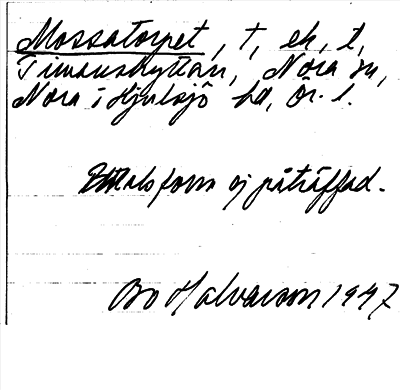 Mossatorpet, t, ek, l,
Timanshyttan, Nora sn,
Nora i Hjulsjö hd, Ör. l.
Uttalsform ej påträffad.
Bo Halvarson 1947